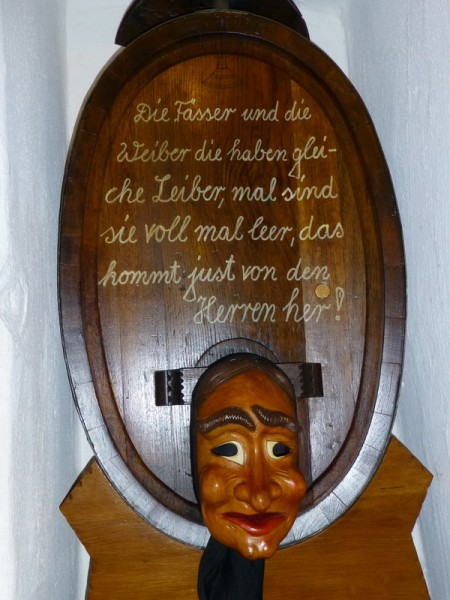 Die Fässer und die
Weiber die haben glei-
che Leiber, mal sind
sie voll mal leer, das
kommt just von den
Herren her!